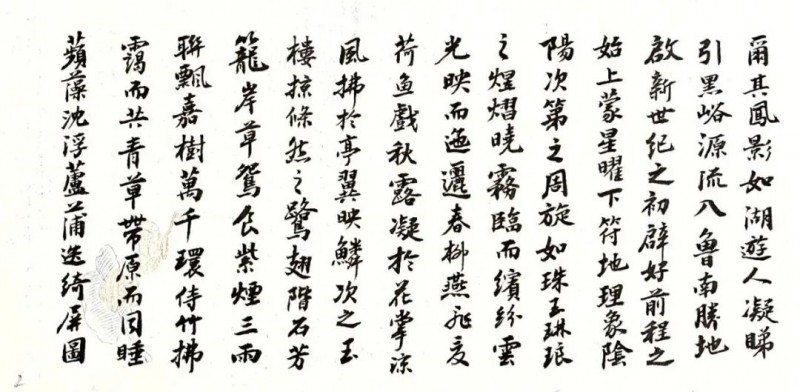 爾其鳳影如湖遊人凝睇
引黑峪源流入魯南勝地
啟新世紀之初辟好前程之
始上蒙星曜下符地理象陰
陽次第之周旋如珠玉琳琅
之煜熠曉霧臨而繽紛雲
光映而迤邐春柳燕飛夏
荷魚戲秋露凝於花掌涼
風拂於亭翼映鱗次之玉
樓掠倏然之鷺翅階石芳
籠岸草鴛食紫煙三兩
聯飄嘉樹萬千環侍竹拂
靄而共青草帶原而同睡
蘋藻沈浮蘆蒲迭綺屏圖
2